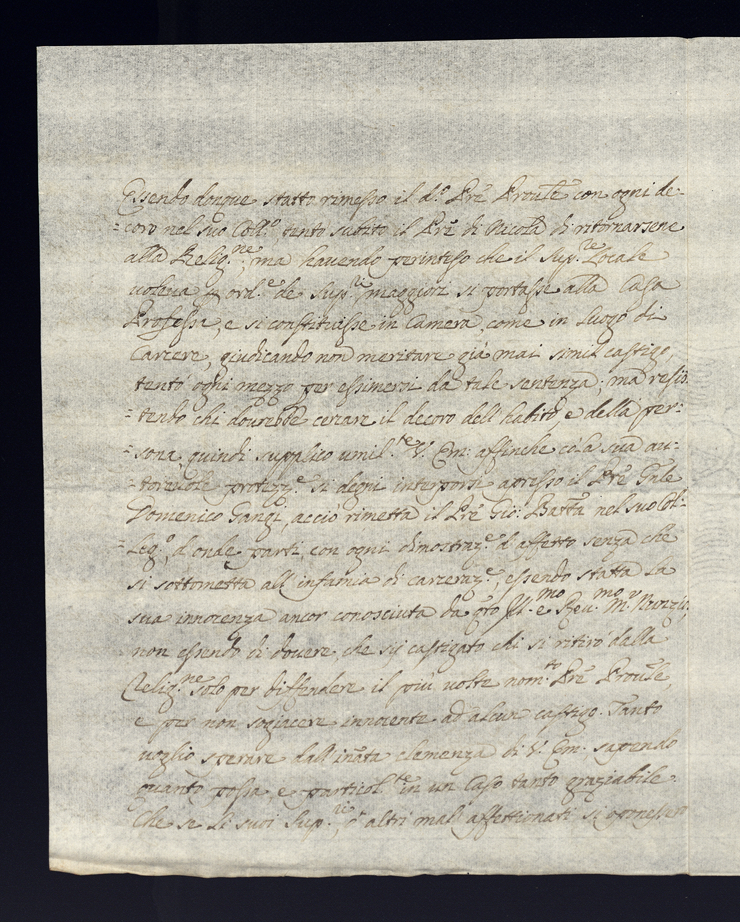 Essendo donque statto rimesso il d.º Prē Proule con ogni de-
=coro nel suo Coll.º, tentò subito il Prē di Nicola di ritornarsene
alla Relig.ne, ma havendo perinteso che il Sup.re Locale
voleva p ord.e de Sup.ri maggiori si portasse alla Casa
Professa, e si constituisse in Camera, come in luogo di
Carcere, giudicando non meritare già mai simil castigo,
tentò ogni mezzo per essimersi da tale sentenza; ma resis
=tendo chi dourebbe cercare il decoro dell'habito, e della per-
=sona, quindi supplico umil.te V. Em: affinche cò la sua au-
=torevole protezz.e si degni interporsi apresso il Prē Gnle
Domenico Gangi, acciò rimetta il Prē Gio: Batta nel suo Col-
=leg.º, d'onde partì, con ogni dimostraz.e d'affetto senza che
si sottometta all'infamia di carceraz.e, essendo statta la
sua innocenza ancor conosciuta da qto Ill.mo e Reu.mo M.r Nunzio,
non essendo di dovere, che sij castigato chi si ritirò dalla
Relig.ne solo per diffendere il più volte nom.to Prē Proule,
e per non sogiacere innocente ad alcun castigo. Tanto
voglio sperare dall'inata clemenza di V. Em: sapendo
quanto possa, e particol.te in un Caso tanto graziabile.
Che se li suoi Sup.ri, ò altri mal' affettionati si oponessero